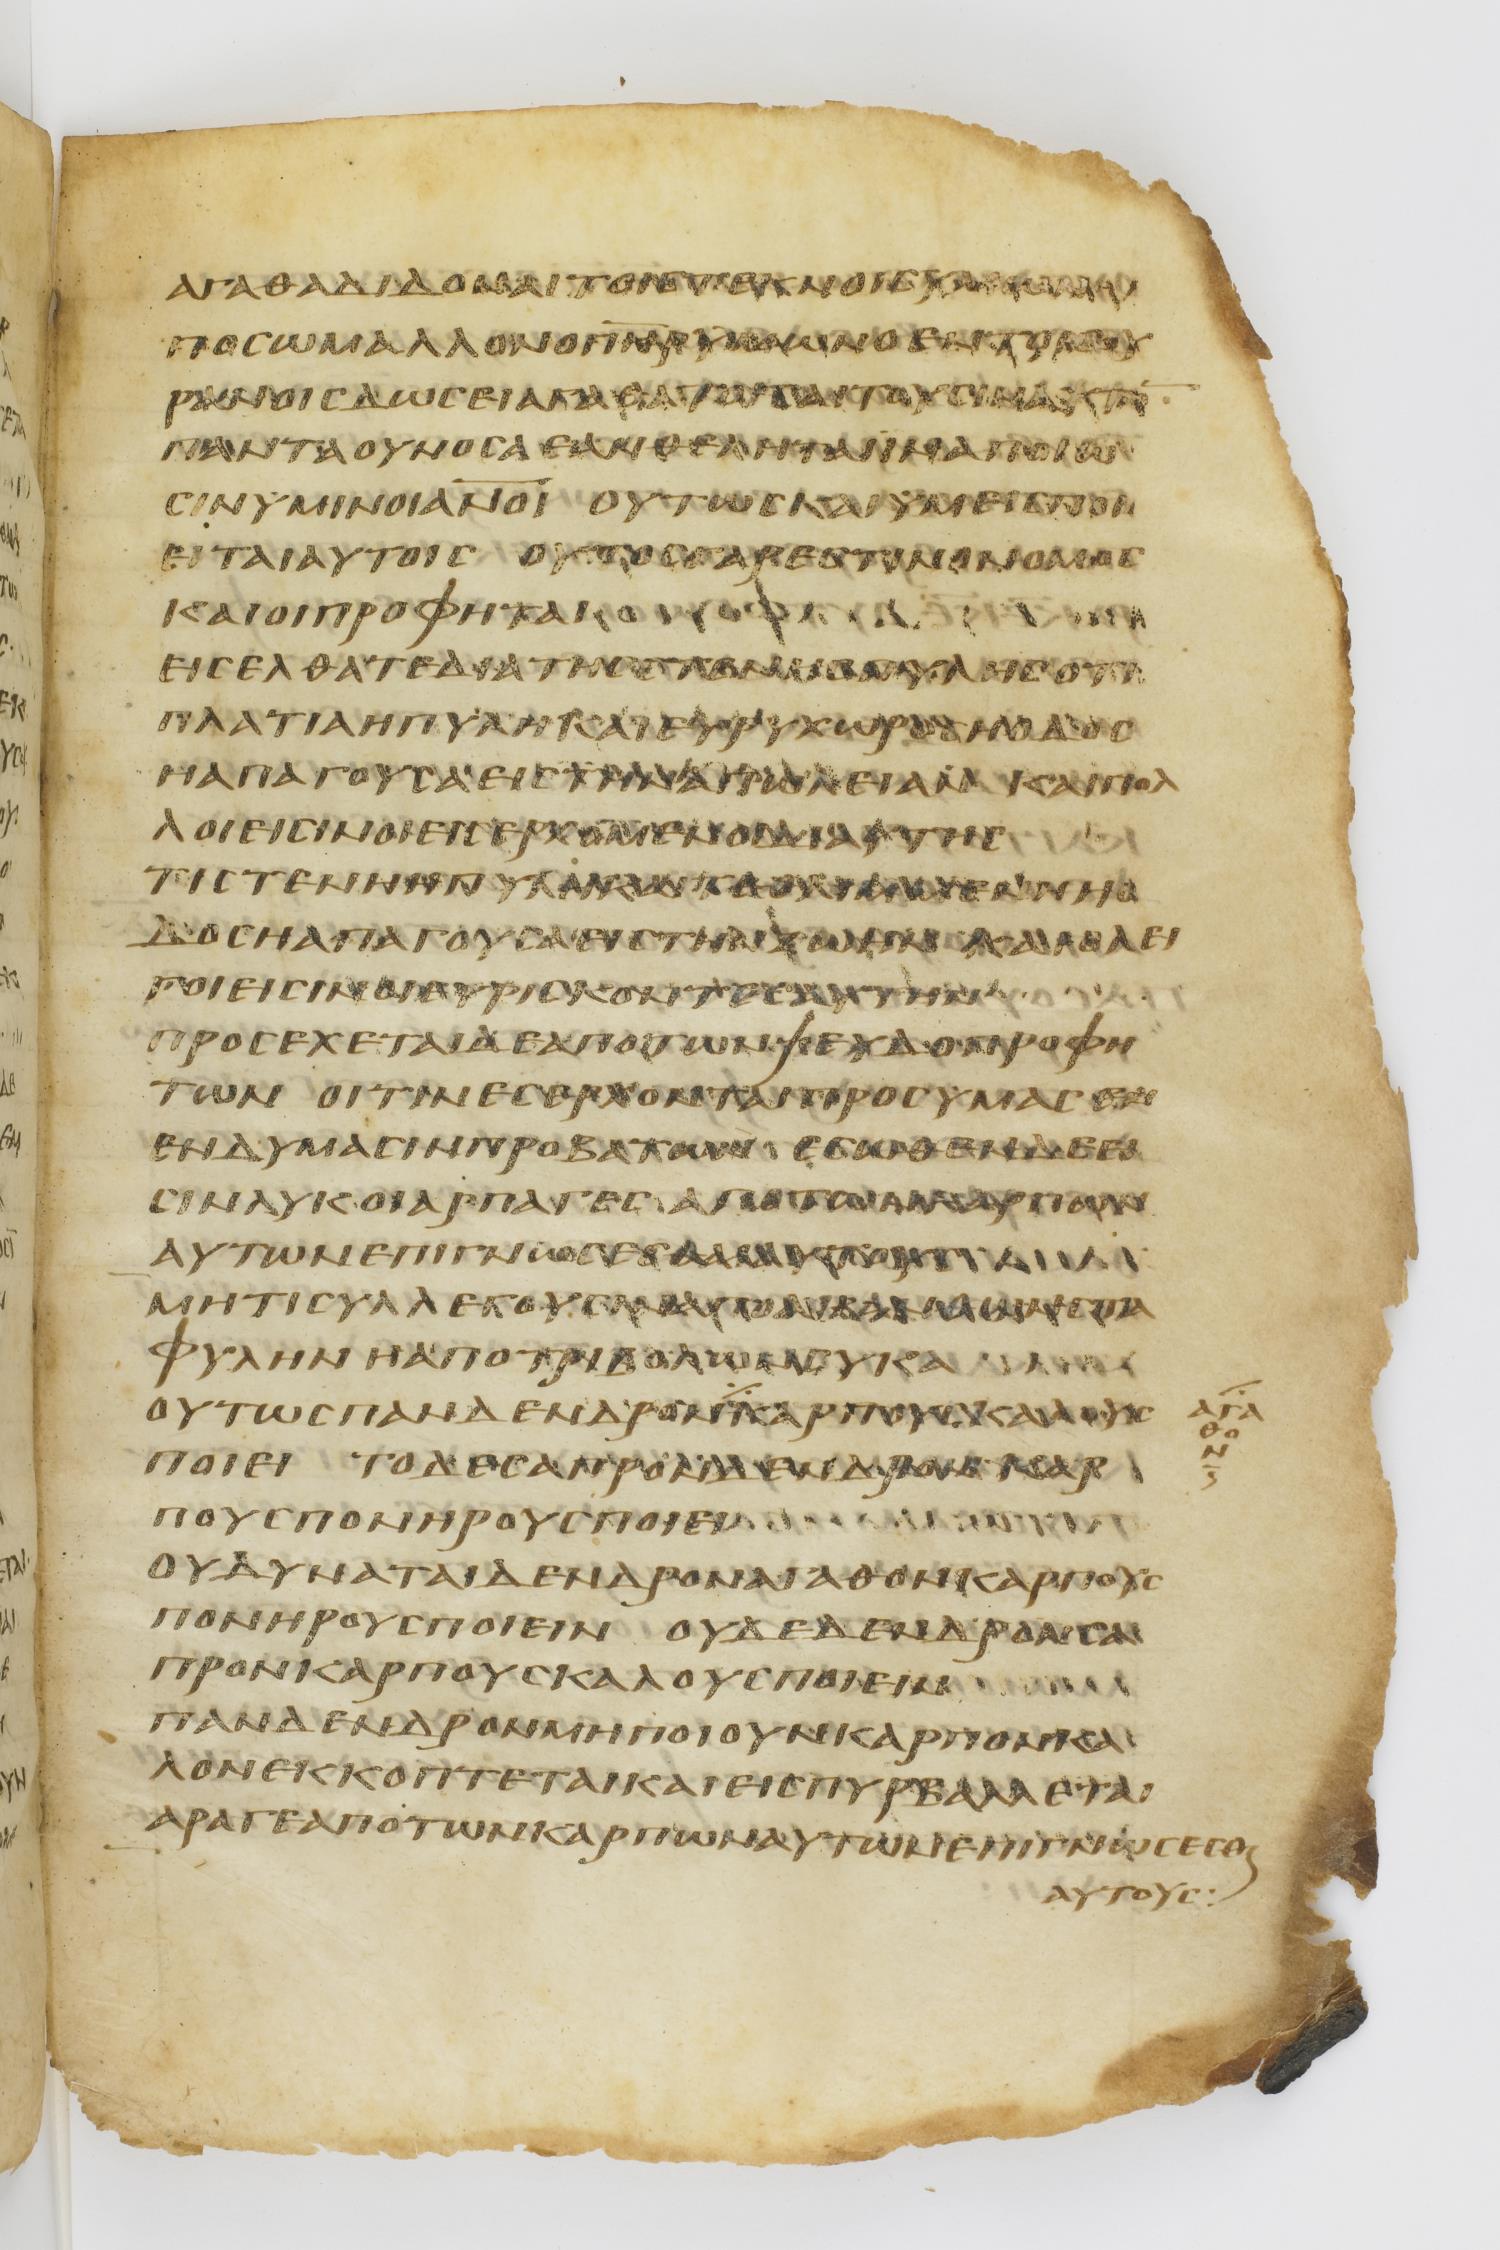 ΑΓΑΘΑΔΙΔΟΝΑΙΤΟΙΣΤΕΚΝΟΙΣ
ΠΟϹΩΜΑΛΛΟΝΟΠΗΡΥΜΩΝΟΕΝΤΟΙϹΟΥ
ΡΑΝΟΙϹΔΩϹΕΙΑΓΑΘΑ
ΠΑΝΤΑΟΥΝΟϹΑΕΑΝΘΕΛΗΤΑΙΙΝΑΠΟΙΩ
ϹΙΝΥΜΙΝΟΙΑΝΟΙ ΟΥΤΩϹΚΑΙΥΜΕΙϹΠΟΙ
ΕΙΤΑΙΑΥΤΟΙϹ ΟΥΤΟϹΓΑΡΕϹΤΙΝΟΝΟΜΟϹ
ΚΑΙΟΙΠΡΟΦΗΤΑΙ
ΕΙϹΕΛΘΑΤΕΔΙΑΤΗϹϹΤΕΝΗϹΠΥΛΗϹΟΤΙ
ΠΛΑΤΙΑΗΠΥΛΗΚΑΙΕΥΡΥΧΩΡΟϹΗΟΔΟϹ
ΗΑΠΑΓΟΥϹΑΕΙϹΤΗΝΑΠΩΛΕΙΑΝ ΚΑΙΠΟΛ
ΛΟΙΕΙϹΙΝΟΙΕΙϹΕΡΧΟΜΕΝΟΙΔΙΑΥΤΗϹ
ΤΙϹΤΕΝΗΗΠΥΛΗΚΑΙΤΕΘΛΙΜΜΕΝΗΗΟ
ΔΟϹΗΑΠΑΓΟΥϹΑΕΙϹΤΗΝΖΩΗΝ ΚΑΙΟΛΕΙ
ΓΟΙΕΙϹΙΝΟΙΕΥΡΙϹΚΟΝΤΕϹΑΥΤΗΝ
ΠΡΟϹΕΧΕΤΑΙΔΕΑΠΟΤΩΝΨΕΥΔΟΠΡΟΦΗ
ΤΩΝ ΟΙΤΙΝΕϹΕΡΧΟΝΤΑΙΠΡΟϹΥΜΑϹΕΝ
ΕΝΔΥΜΑϹΙΝΠΡΟΒΑΤΩΝ ΕϹΩΘΕΝΔΕΕΙ
ϹΙΝΛΥΚΟΙΑΡΠΑΓΕϹ ΑΠΟΤΩΝΚΑΡΠΩΝ
ΑΥΤΩΝΕΠΙΓΝΩϹΕϹΘΑΙΑΥΤΟΥϹ
ΜΗΤΙϹΥΛΛΕΓΟΥϹΙΝΑΠΟΑΚΑΝΘΩΝϹΤΑ
ΦΥΛΗΝΗΑΠΟΤΡΙΒΟΛΩΝϹΥΚΑ
ΟΥΤΩϹΠΑΝΔΕΝΔΡΟΝ⁒ΚΑΡΠΟΥϹΚΑΛΟΥϹ ⁒ΑΓΑ
ΘΟ
Ν
ΠΟΙΕΙ ΤΟΔΕϹΑΠΡΟΝΔΕΝΔΡΟΝΚΑΡ
ΠΟΥϹΠΟΝΗΡΟΥϹΠΟΙΕΙ
ΟΥΔΥΝΑΤΑΙΔΕΝΔΡΟΝΑΓΑΘΟΝΚΑΡΠΟΥϹ
ΠΟΝΗΡΟΥϹΠΟΙΕΙΝ ΟΥΔΕΔΕΝΔΡΟΝϹΑ
ΠΡΟΝΚΑΡΠΟΥϹΚΑΛΟΥϹΠΟΙΕΙΝ
ΠΑΝΔΕΝΔΡΟΝΜΗΠΟΙΟΥΝΚΑΡΠΟΝΚΑ
ΛΟΝΕΚΚΟΠΤΕΤΑΙΚΑΙΕΙϹΠΥΡΒΑΛΛΕΤΑΙ
ΑΡΑΓΕΑΠΟΤΩΝΚΑΡΠΩΝΑΥΤΩΝΕΠΙΓΝΩϹΕϹΘ
ΑΥΤΟΥϹ: